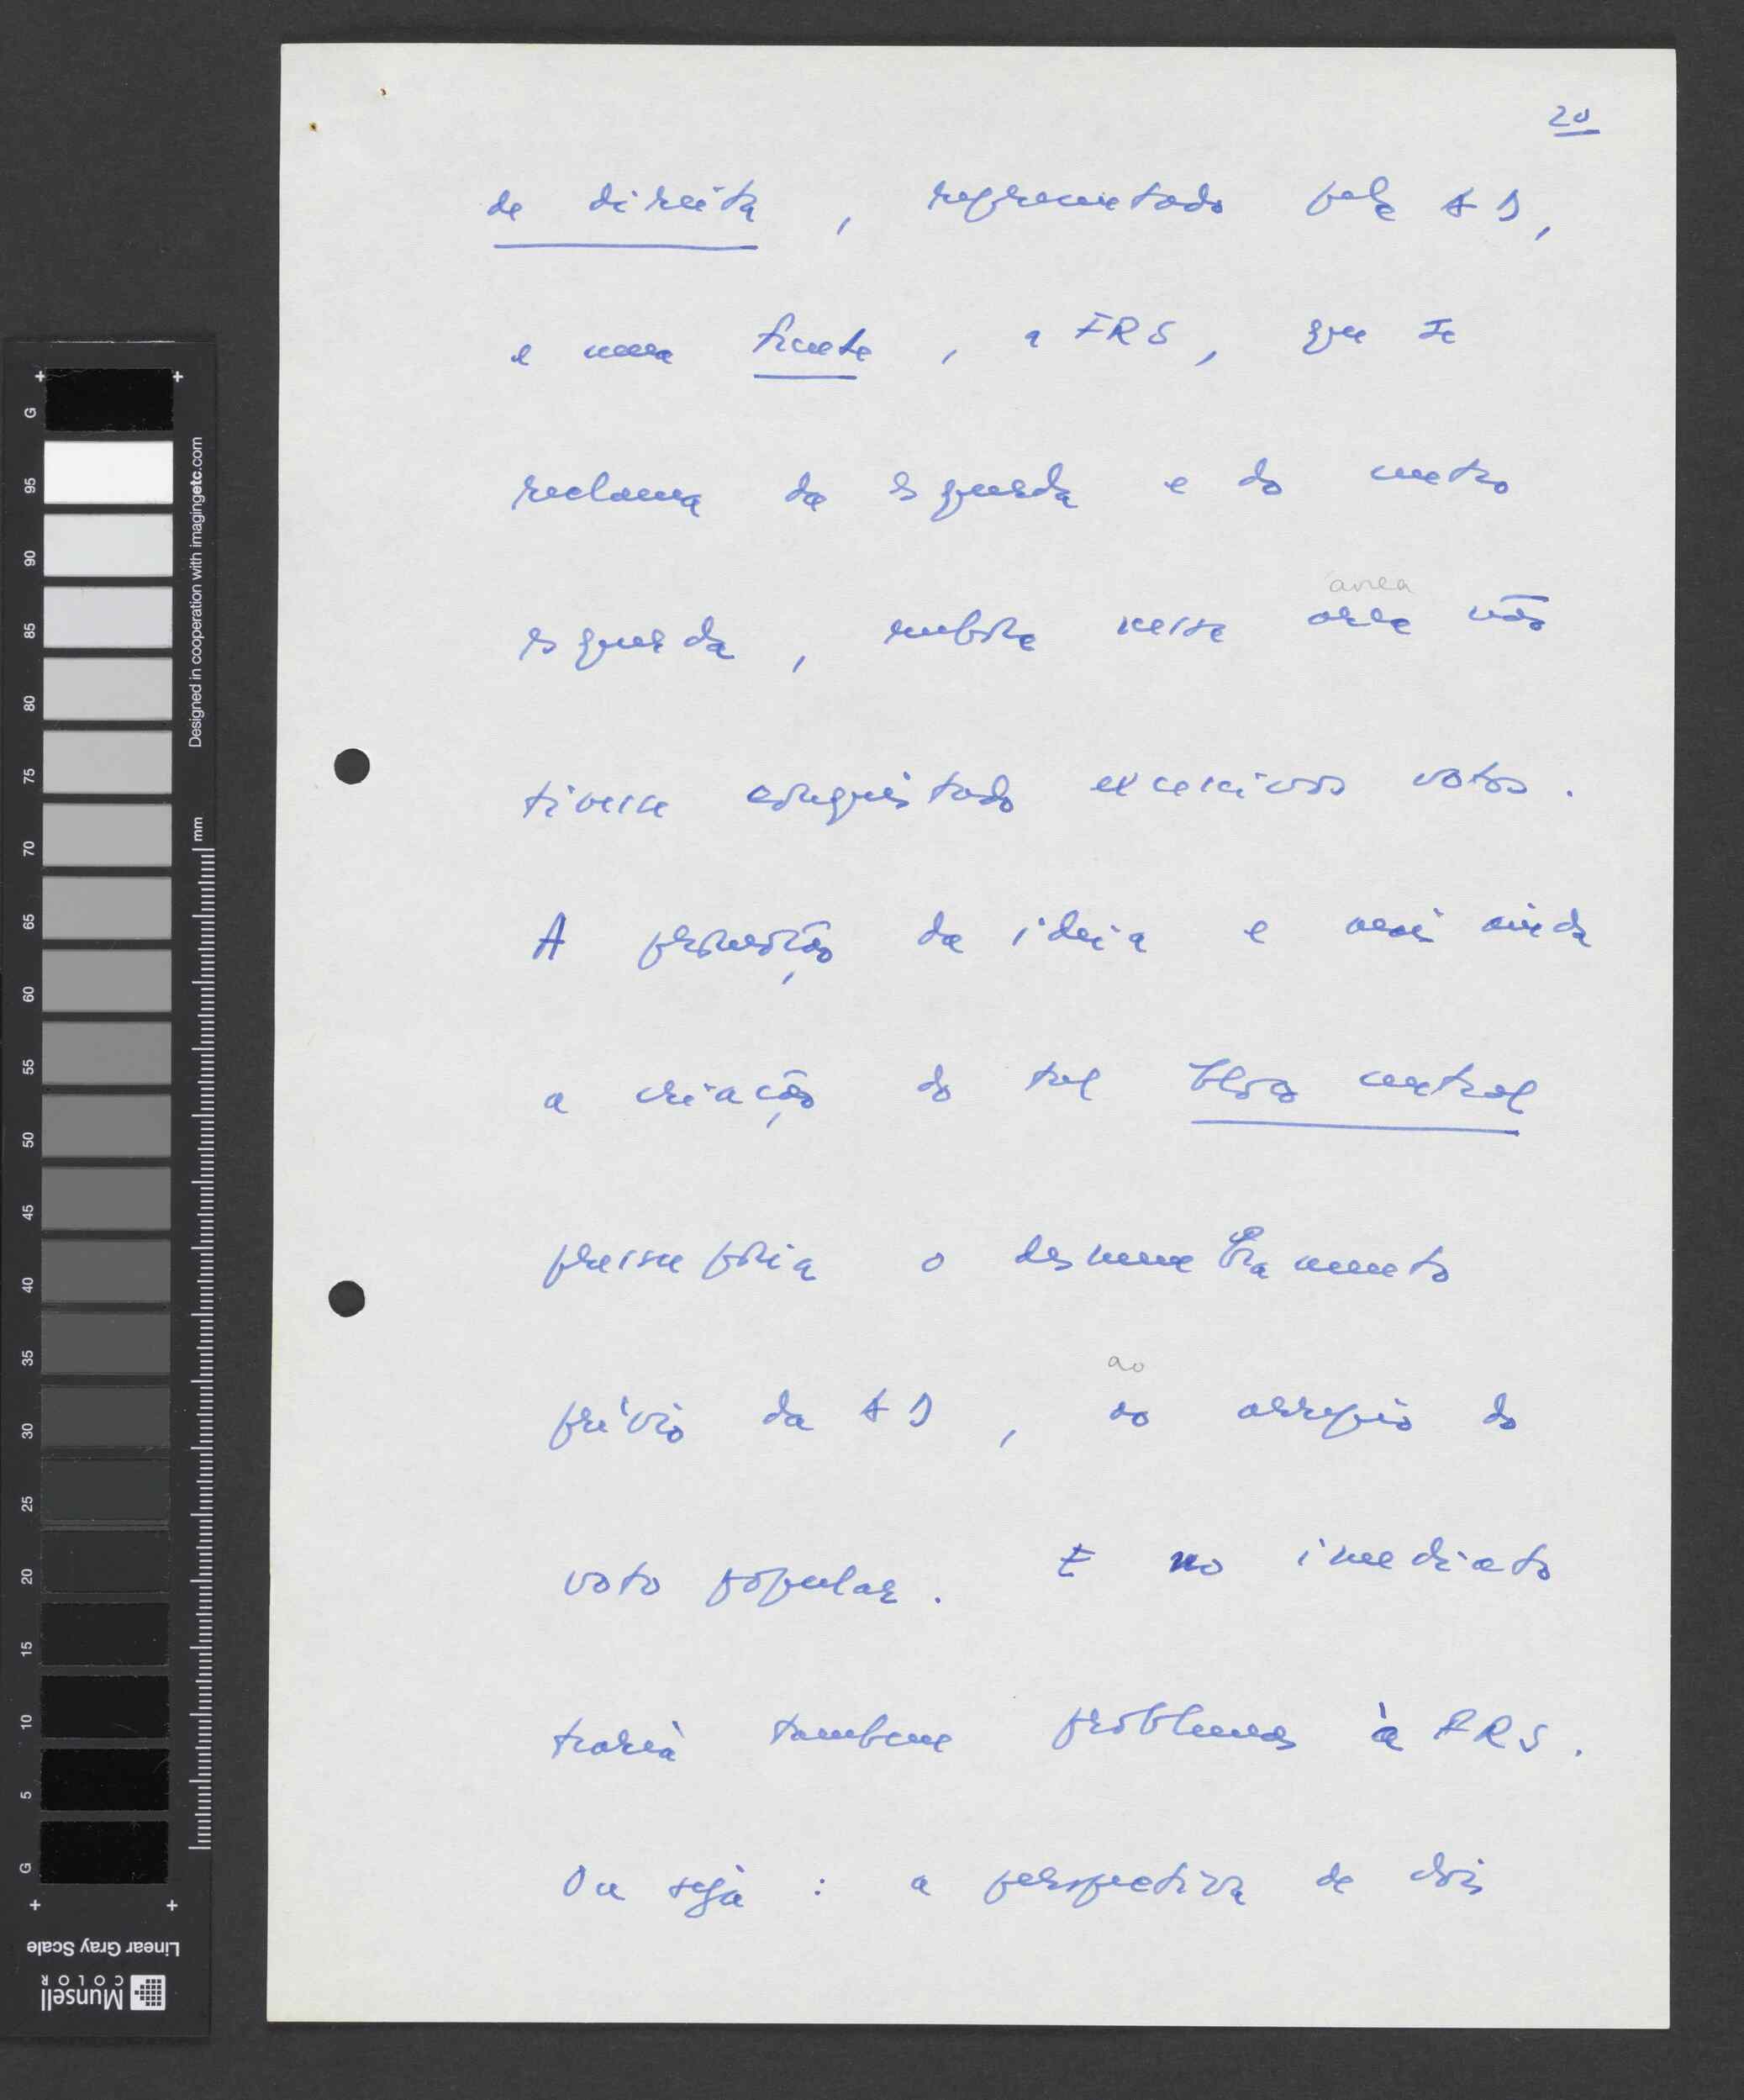 20
de direita, representado pela AD,
e uma frente, a FRS, que se
reclama da esquerda e do centro
area
esquerda, embora nessa area não
tivesse conquistado excessivos votos.
A promoção da ideia e mais ainda
a criação do tal bloco central
pressuporia o desmembramento
ao
prévio da AD, ao arrepio do
voto popular. E no imediato
traria também problemas à FRS.
Ou seja: a perspectiva de dois
G
95
90
85
80
75
70
65
60
55
50
45
40
35
30
25
20
15
10
5
G
Designed in cooperation with imagingetc.com
mm
Linear Gray Scale
Munsell
COLOR